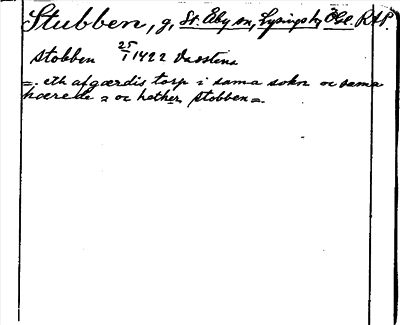 Stubben, g, St. Åby sn, Lysings h, Ögl. RAP.
stobben 25/1 1422 Vadstena
=. eth afgærdis torp i sama sokn oc sama
hærede = oc hether stobben =.